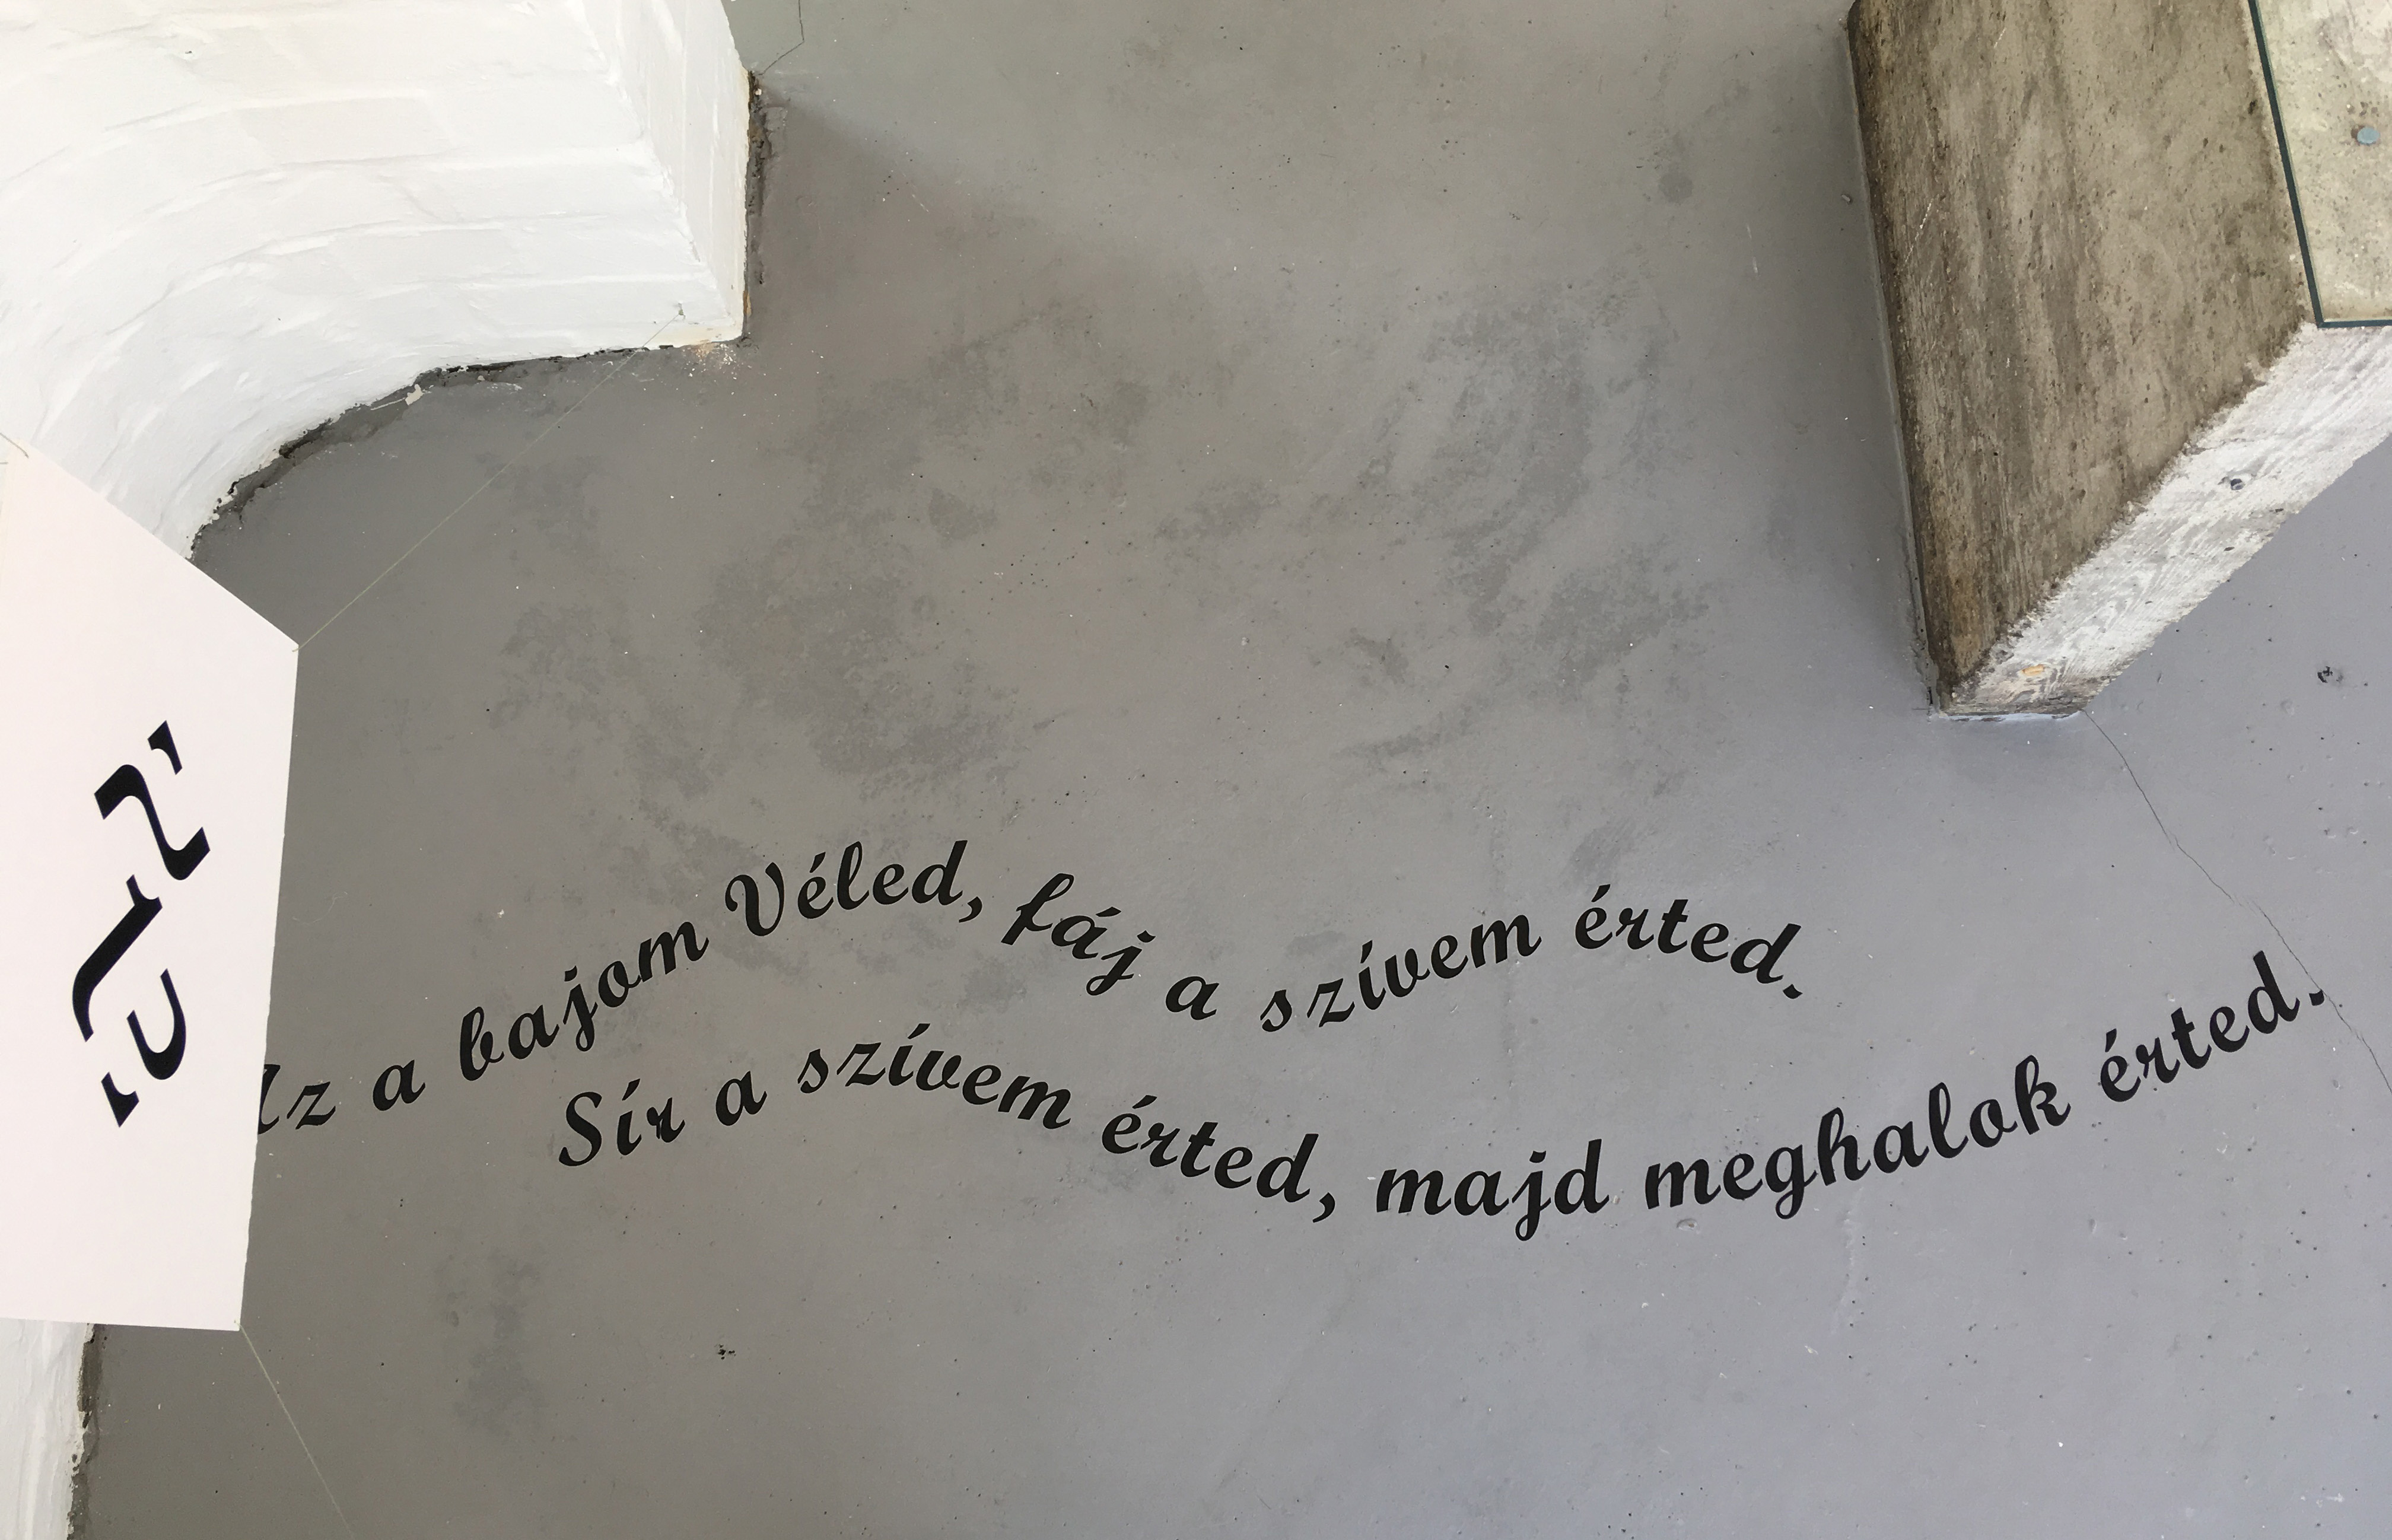 Az a bajom Véled, fáj a szívem érted.
Sír a szívem érted, majd meghalok érted.